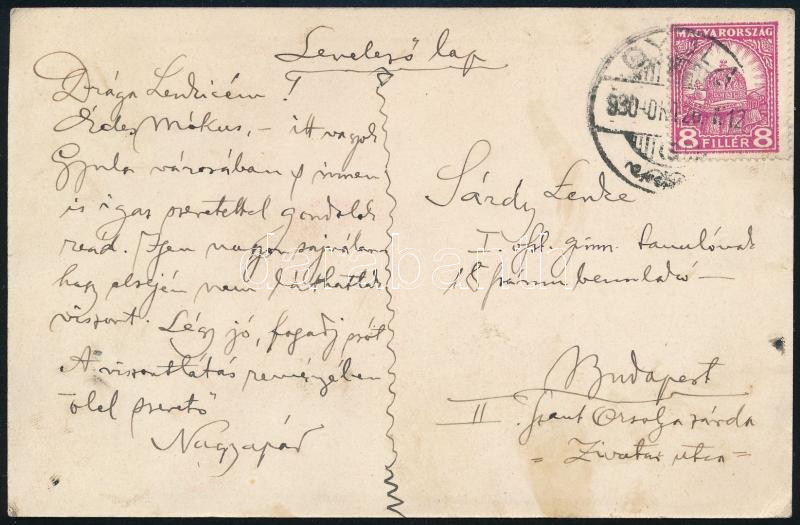 Levelező lap
Drága Lenkicém!
Édes Mókus, – itt vagyok
Gyula városában s innen
is igaz szeretettel gondolok
reád. Igen nagyon sajnálom
hogy elsején nem láthatlak
viszont. Légy jó, fogadj szót
A viszontlátás reményében
ölel szerető
Nagyapád
MAGYARORSZÁG
8 FILLÉR 8
930
Sárdy Lenke
I. oszt. gimn. tanulónak
18 számu bennlakó –
Budapest
II. Szent Orsolya zárda
= Zivatar utca =
darabanth